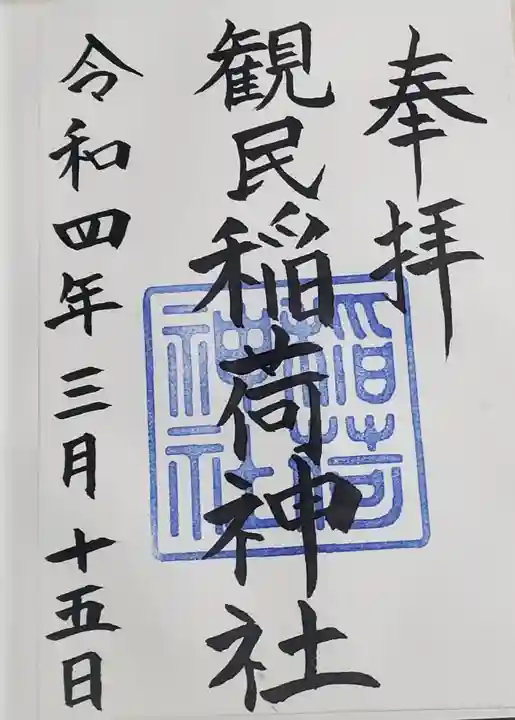 奉拝
観民稲荷神社
令和四年三月十五日